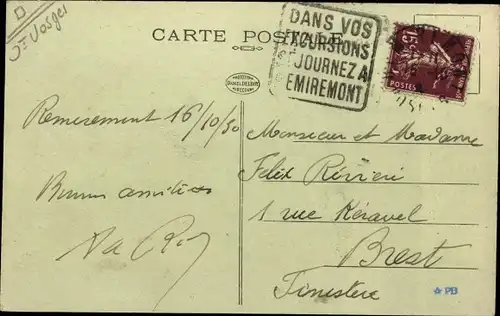 D
Vosges
CARTE POSTALE
DANS VOS
EXCURSIONS
SÉJOURNEZ A
REMIREMONT
15c
POSTES
Remiremont 16/10/30
Bonnes amitiés
Monsieur et Madame
Félix Rivière
1 rue Kéravel
Brest
Finistère
PB